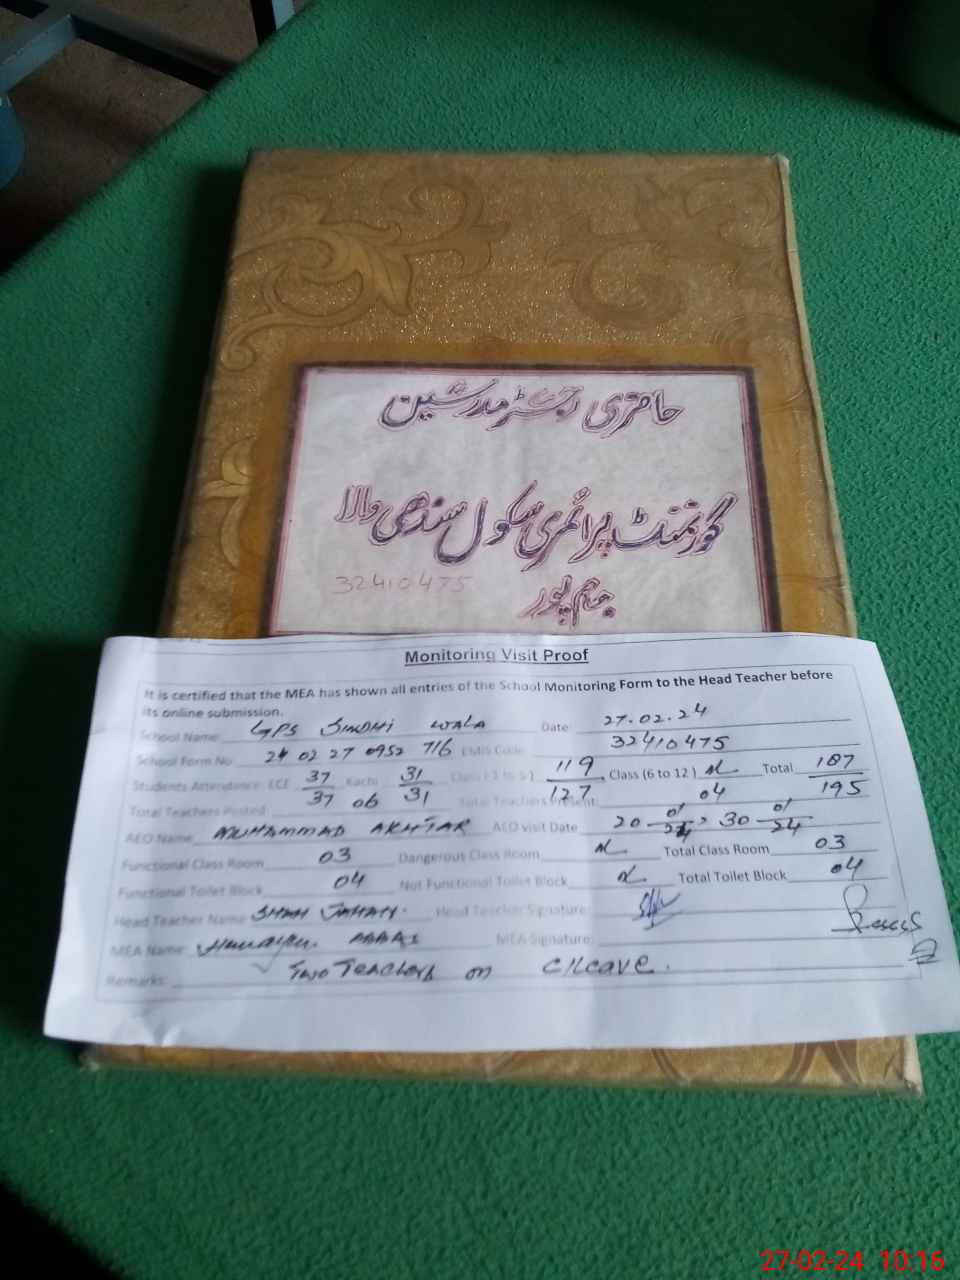 حاضری رجسٹر مدرسین
گورنمنٹ پرائمری سکول سندھی والا
32410475
جام پور
Monitoring Visit Proof
It is certified that the MEA has shown all entries of the School Monitoring Form to the Head Teacher before
its online submission.
School Name: GPS SINDHI WALA Date: 27.02.24
School Form No 24 02 27 0952 716 EMIS Code 32410475
Students Attendance: ECE 37/37 Kachi 31/31 Class (1 to 5) 119/127 Class (6 to 12) Total 187/195
Total Teachers Posted 06 Total Teachers Present: 04
AEO Name: MUHAMMAD AKHTAR AEO visit Date 20 01/24, 30 01/24
Functional Class Room 03 Dangerous Class Room Total Class Room 03
Functional Toilet Block 04 Not Functional Toilet Block Total Toilet Block 04
Head Teacher Name SHAH JAHAN. Head Teacher Signature:
MEA Name: Humayun ABBAS MEA Signature:
Remarks: Two Teachers on C/Leave.
27-02-24 10:16